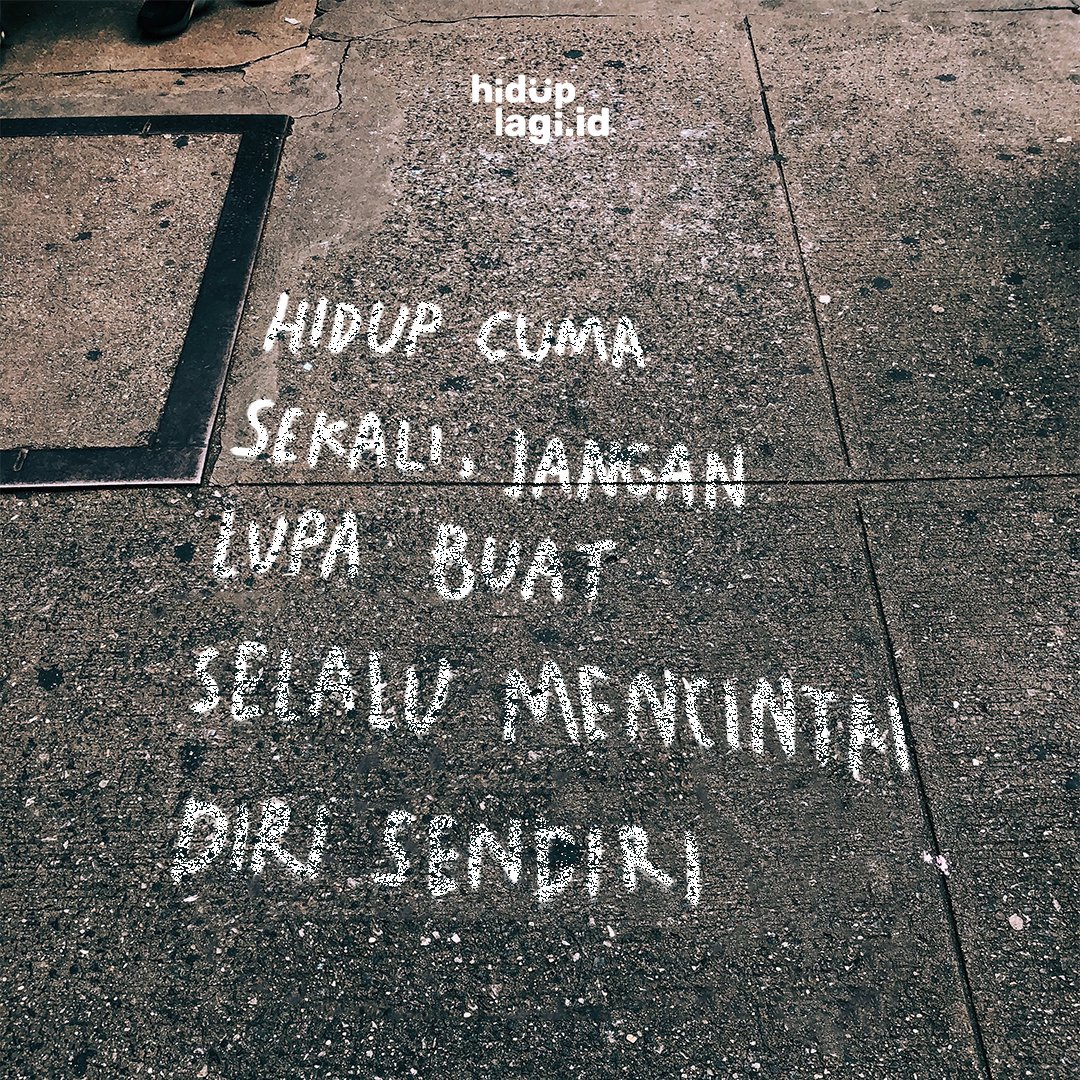 hidüp
lagi.id
HIDUP CUMA
SEKALI, JANGAN
LUPA BUAT
SELALU MENCINTAI
DIRI SENDIRI